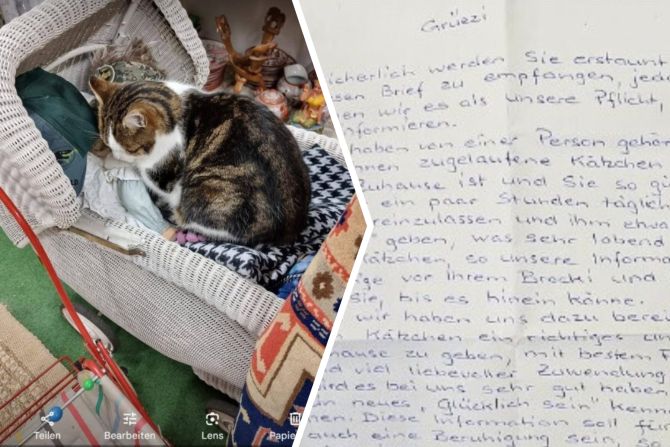 Grüezi
icherlich werden Sie erstaunt
sen Brief zu empfangen, jed
en wir es als unsere Pflicht,
nformieren.
haben von einer Person gehör
nen zugelaufene Kätzchen
Zuhause ist und Sie so g
ein paar Stunden täglic
reinzulassen und ihm etwa
geben, was sehr lobend
ätzchen, so unsere Informa
ge vor Ihrem Brocki und
Sie, bis es hinein könne.
wir haben uns dazu berei
Kätzchen ein richtiges
hause zu geben, mit bestem
d viel liebevoller Zuwendung
ird es bei uns sehr gut haben
n neues, "Glücklich sein" kenn
en. Diese Information soll für
auch eine Beruhigung sein, so
Teilen
Bearbeiten
Lens
Papie